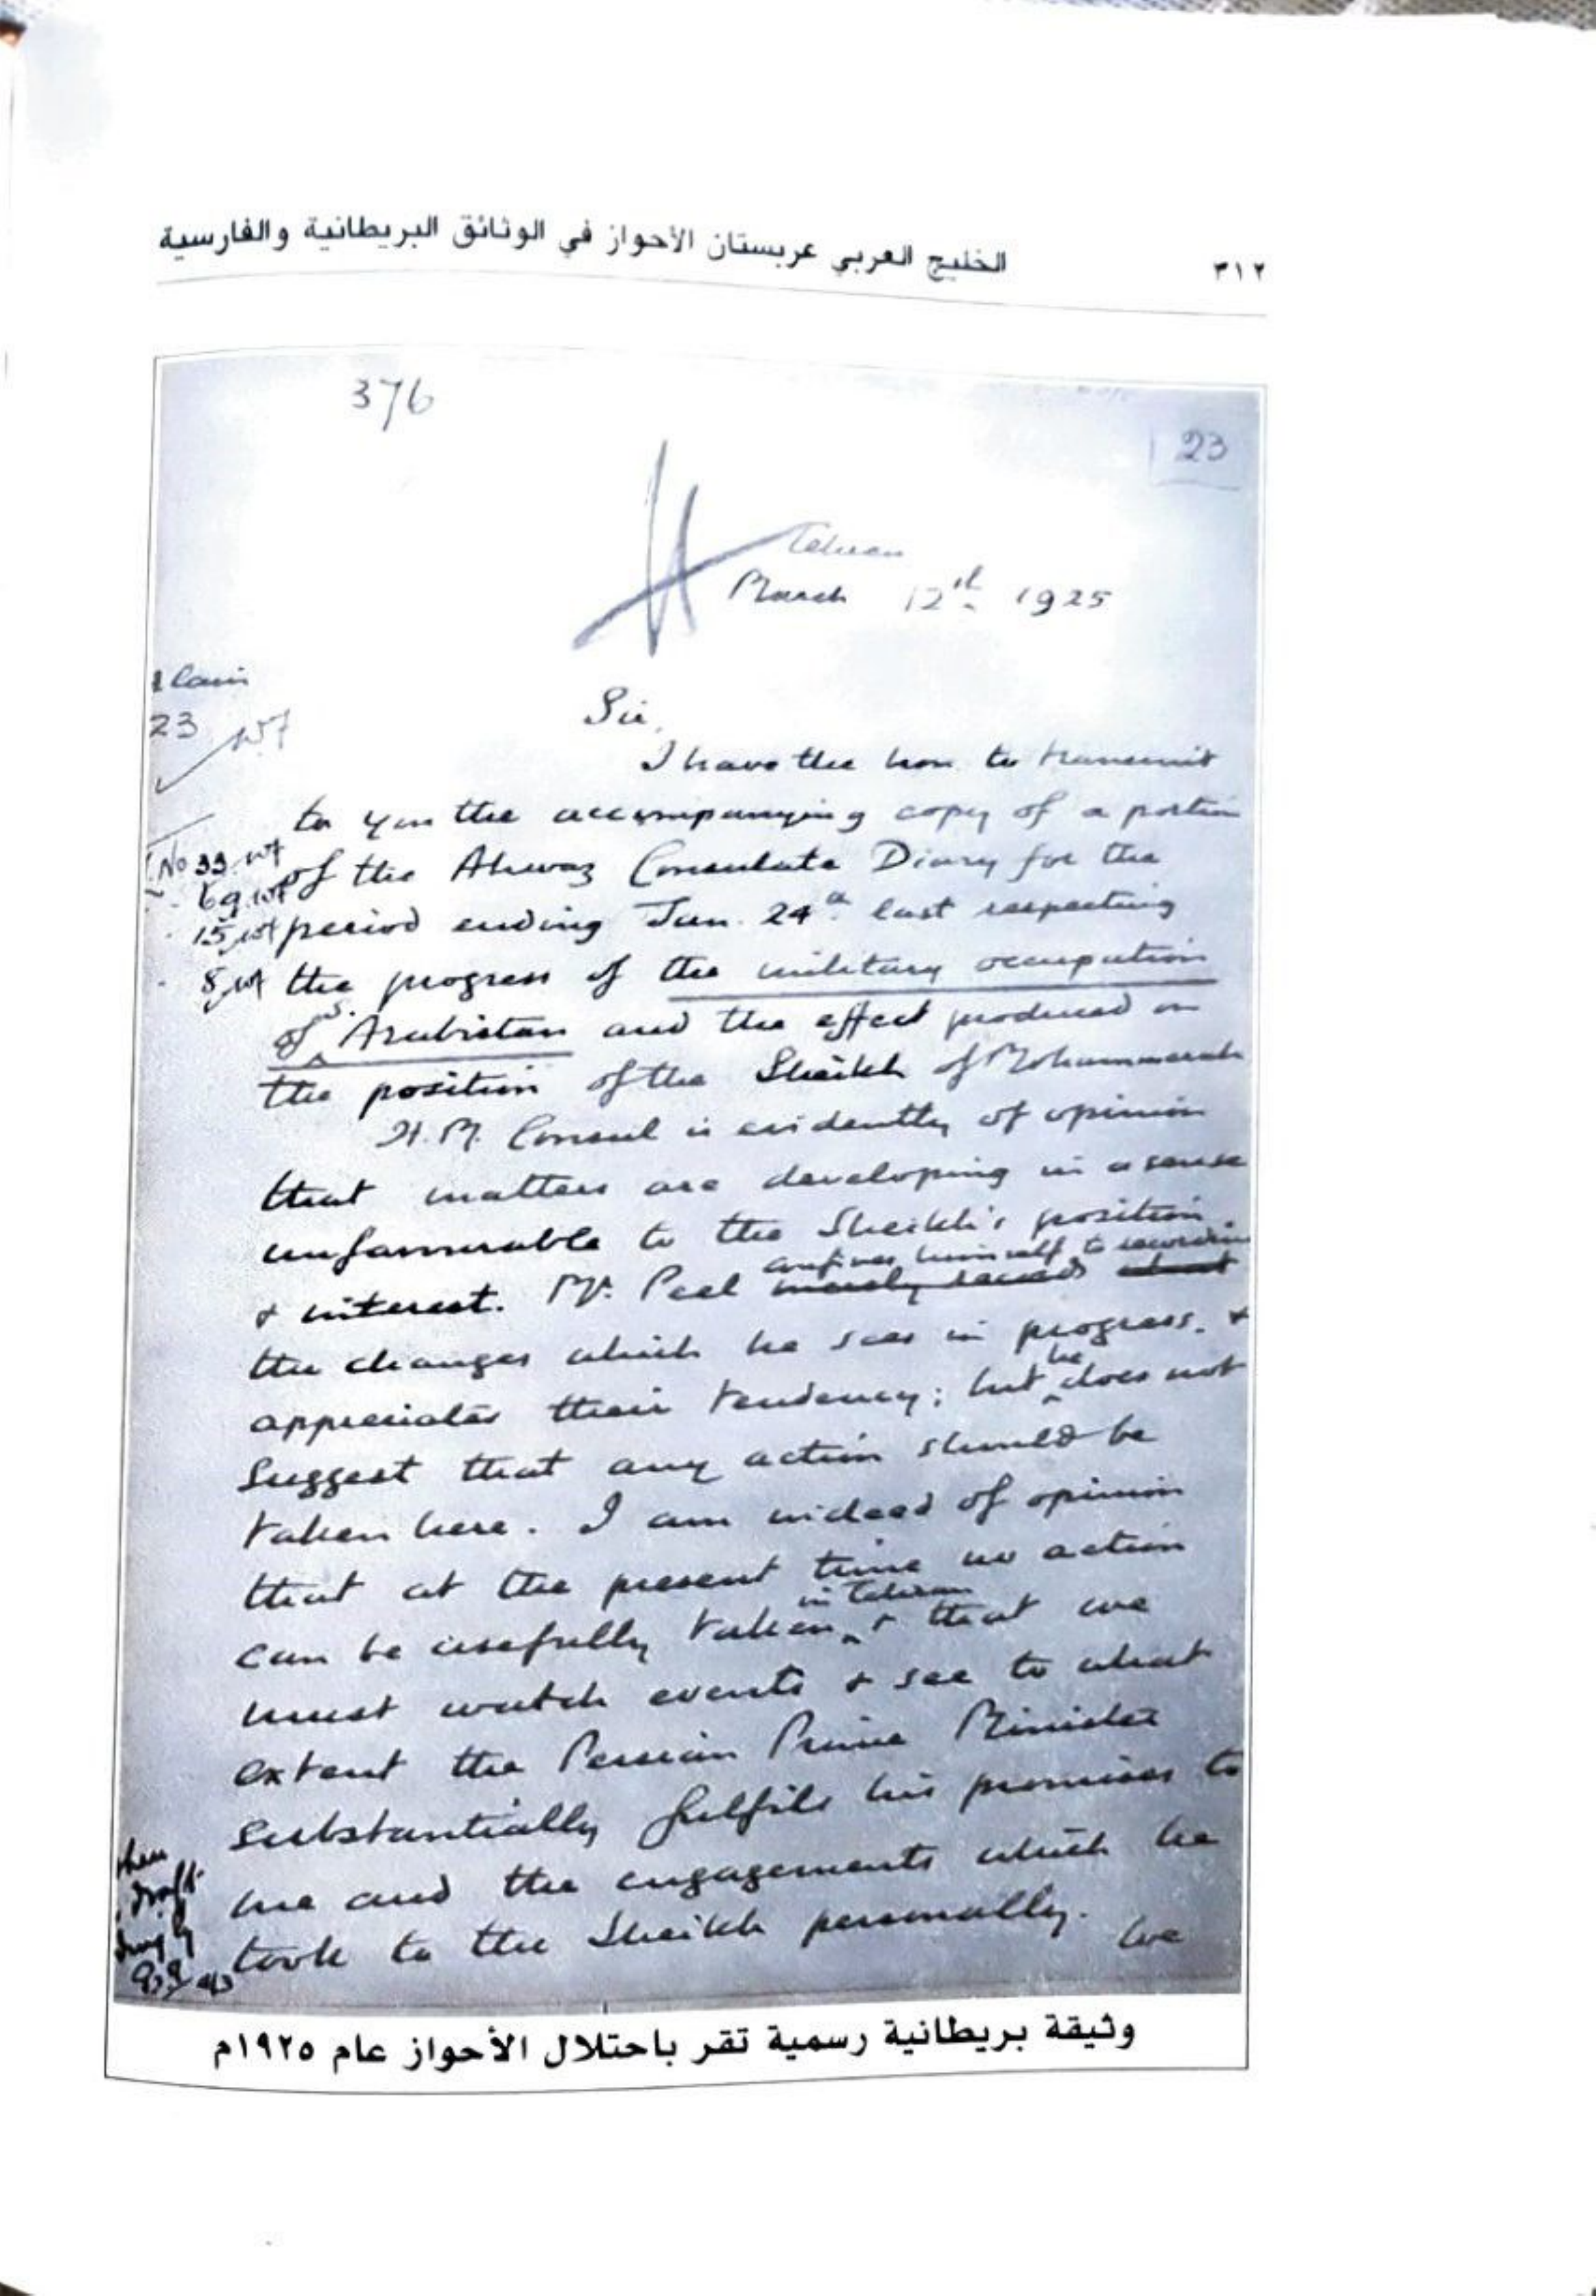 ٣١٢
الخليج العربي عربستان الأحواز في الوثائق البريطانية والفارسية
376
23
Tehran
March 12th 1925
23
Sir,
I have the hon. to transmit
to you the accompanying copy of a portion
No 33
of the Ahwaz Consulate Diary for the
69
15
period ending Jan. 24th last respecting
8
the progress of the military occupation
of S. Arabistan and the effect produced on
the position of the Sheikh of Mohammerah
H.M. Consul is evidently of opinion
that matters are developing in a sense
unfavourable to the Sheikh's position
confines himself to recording
& interest. Mr. Peel merely records
the changes which he sees in progress &
appreciates their tendency; but he does not
suggest that any action should be
taken here. I am indeed of opinion
that at the present time no action
can be usefully taken in Tehran & that we
must watch events & see to what
extent the Persian Prime Minister
substantially fulfils his promises to
me and the engagements which he
took to the Sheikh personally. We
draft
وثيقة بريطانية رسمية تقر باحتلال الأحواز عام ١٩٢٥م